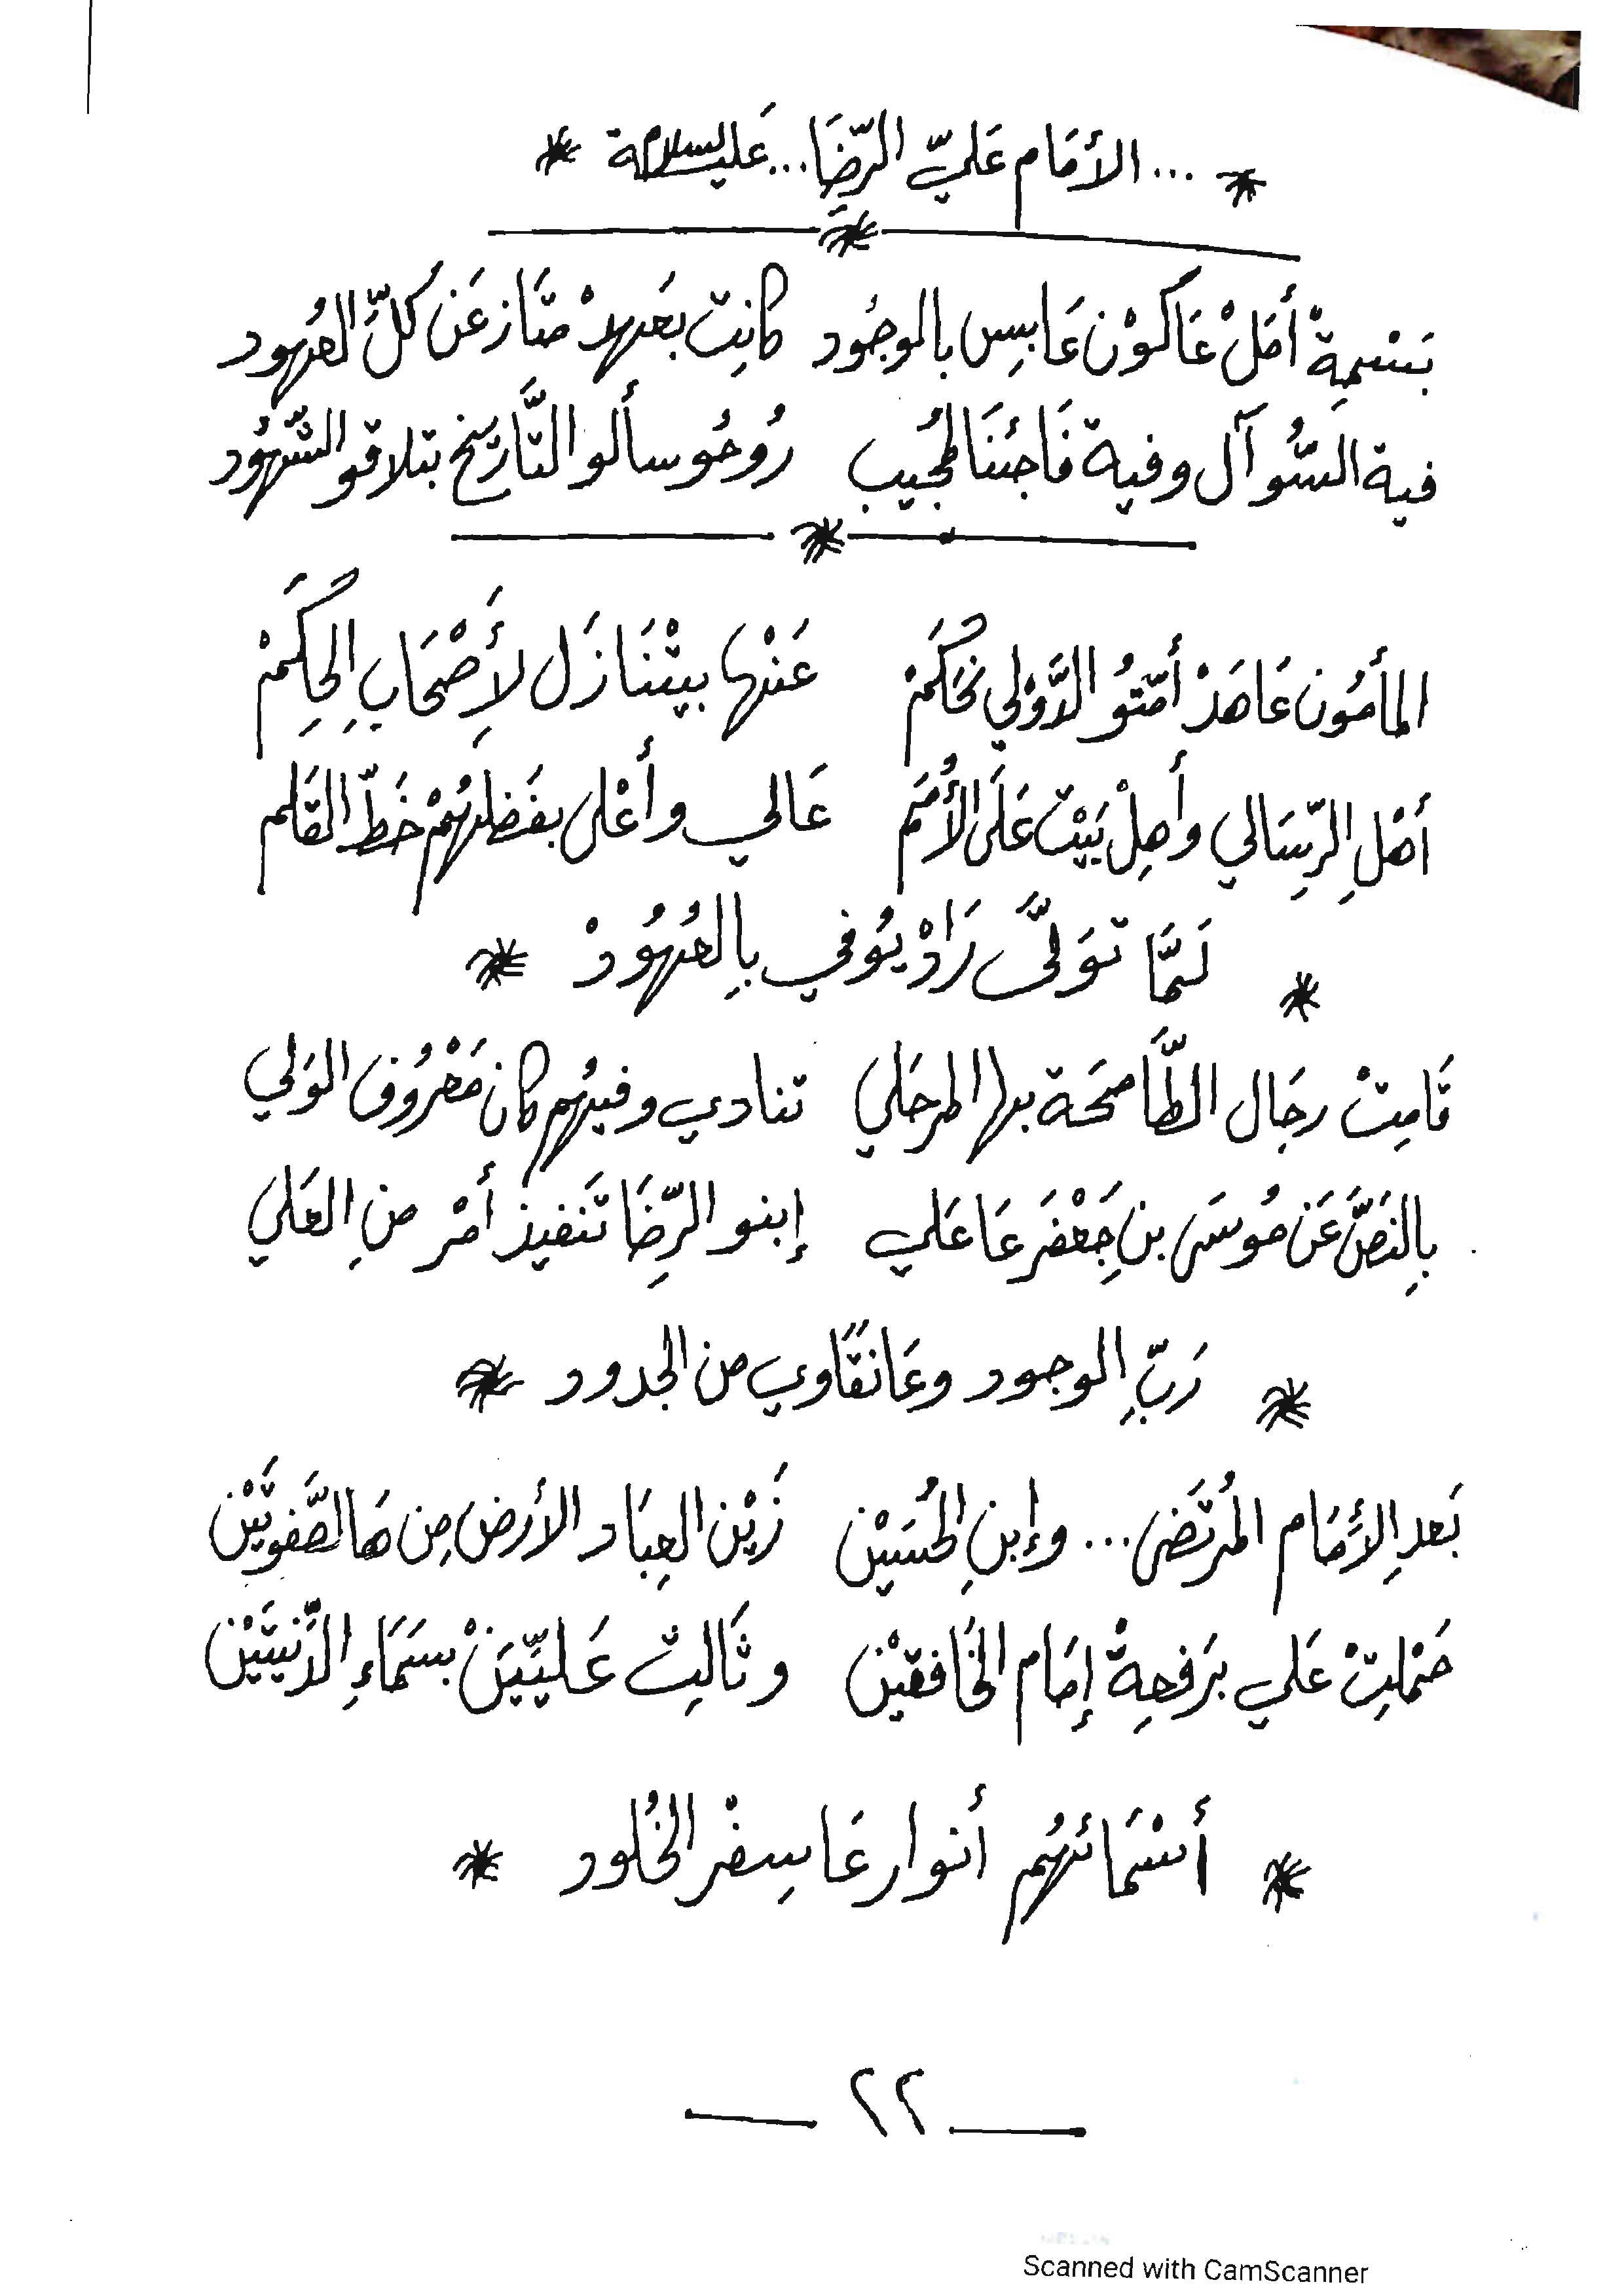 * ... الأمَام عَليّ الرّضَا... عَليه السلام *
بَسْمِةْ أمَلْ عَاكَوْن عَابِس بالوجُود كانِت بَعَهدْ متَاز عَن كلّ العُهود
فية السُّوآل وفية فَاجئنَا لمجُيب رُوحُو سألو التَّاريخ بتلاقو الشّهُود
المأمُون عَاهَدْ أمّتُو الدَّوْلي حَكَمْ عَنْها بيتْنَازَل لأِصْحَابِ الحِكَمْ
أهْلِ الرّسَالي وأهِلْ بَيْت عَلَى الأُمَم عَالي وأعْلى بفَضلهُمْ خَطّ القَلم
* لَمَّا تَوَلَّى رَادْ يُوفي بِالعُهُودْ *
قَامِتْ رجَال الطَّامحَة بها المرحَلي تنادي وفيهُم كان مَعْرُوف الوَلي
بِالنَصّ عَن مُوسَى بنِ جَعْفَر عَا عَلي إبنو الرّضَا تَنفيذ أمْر منِ العَلي
* رَبِّ الوجود وعَا نقَاوي من الجدود *
بَعدِ الأمَام المُرتَضى... وإبنِ الحُسَيْن زَيْن العِبَاد الأرض مِن هَا الصَّفوتَيْن
حَمْلِتْ عَلي بَرفعِةْ إمَام الخَافقيْن وتَالِت عَليّيَنْ بسَمَاءِ الدَّنيتَيْن
* أسْمَائهُم أنوار عَا سِفْر الخُلود *
٢٢
Scanned with CamScanner